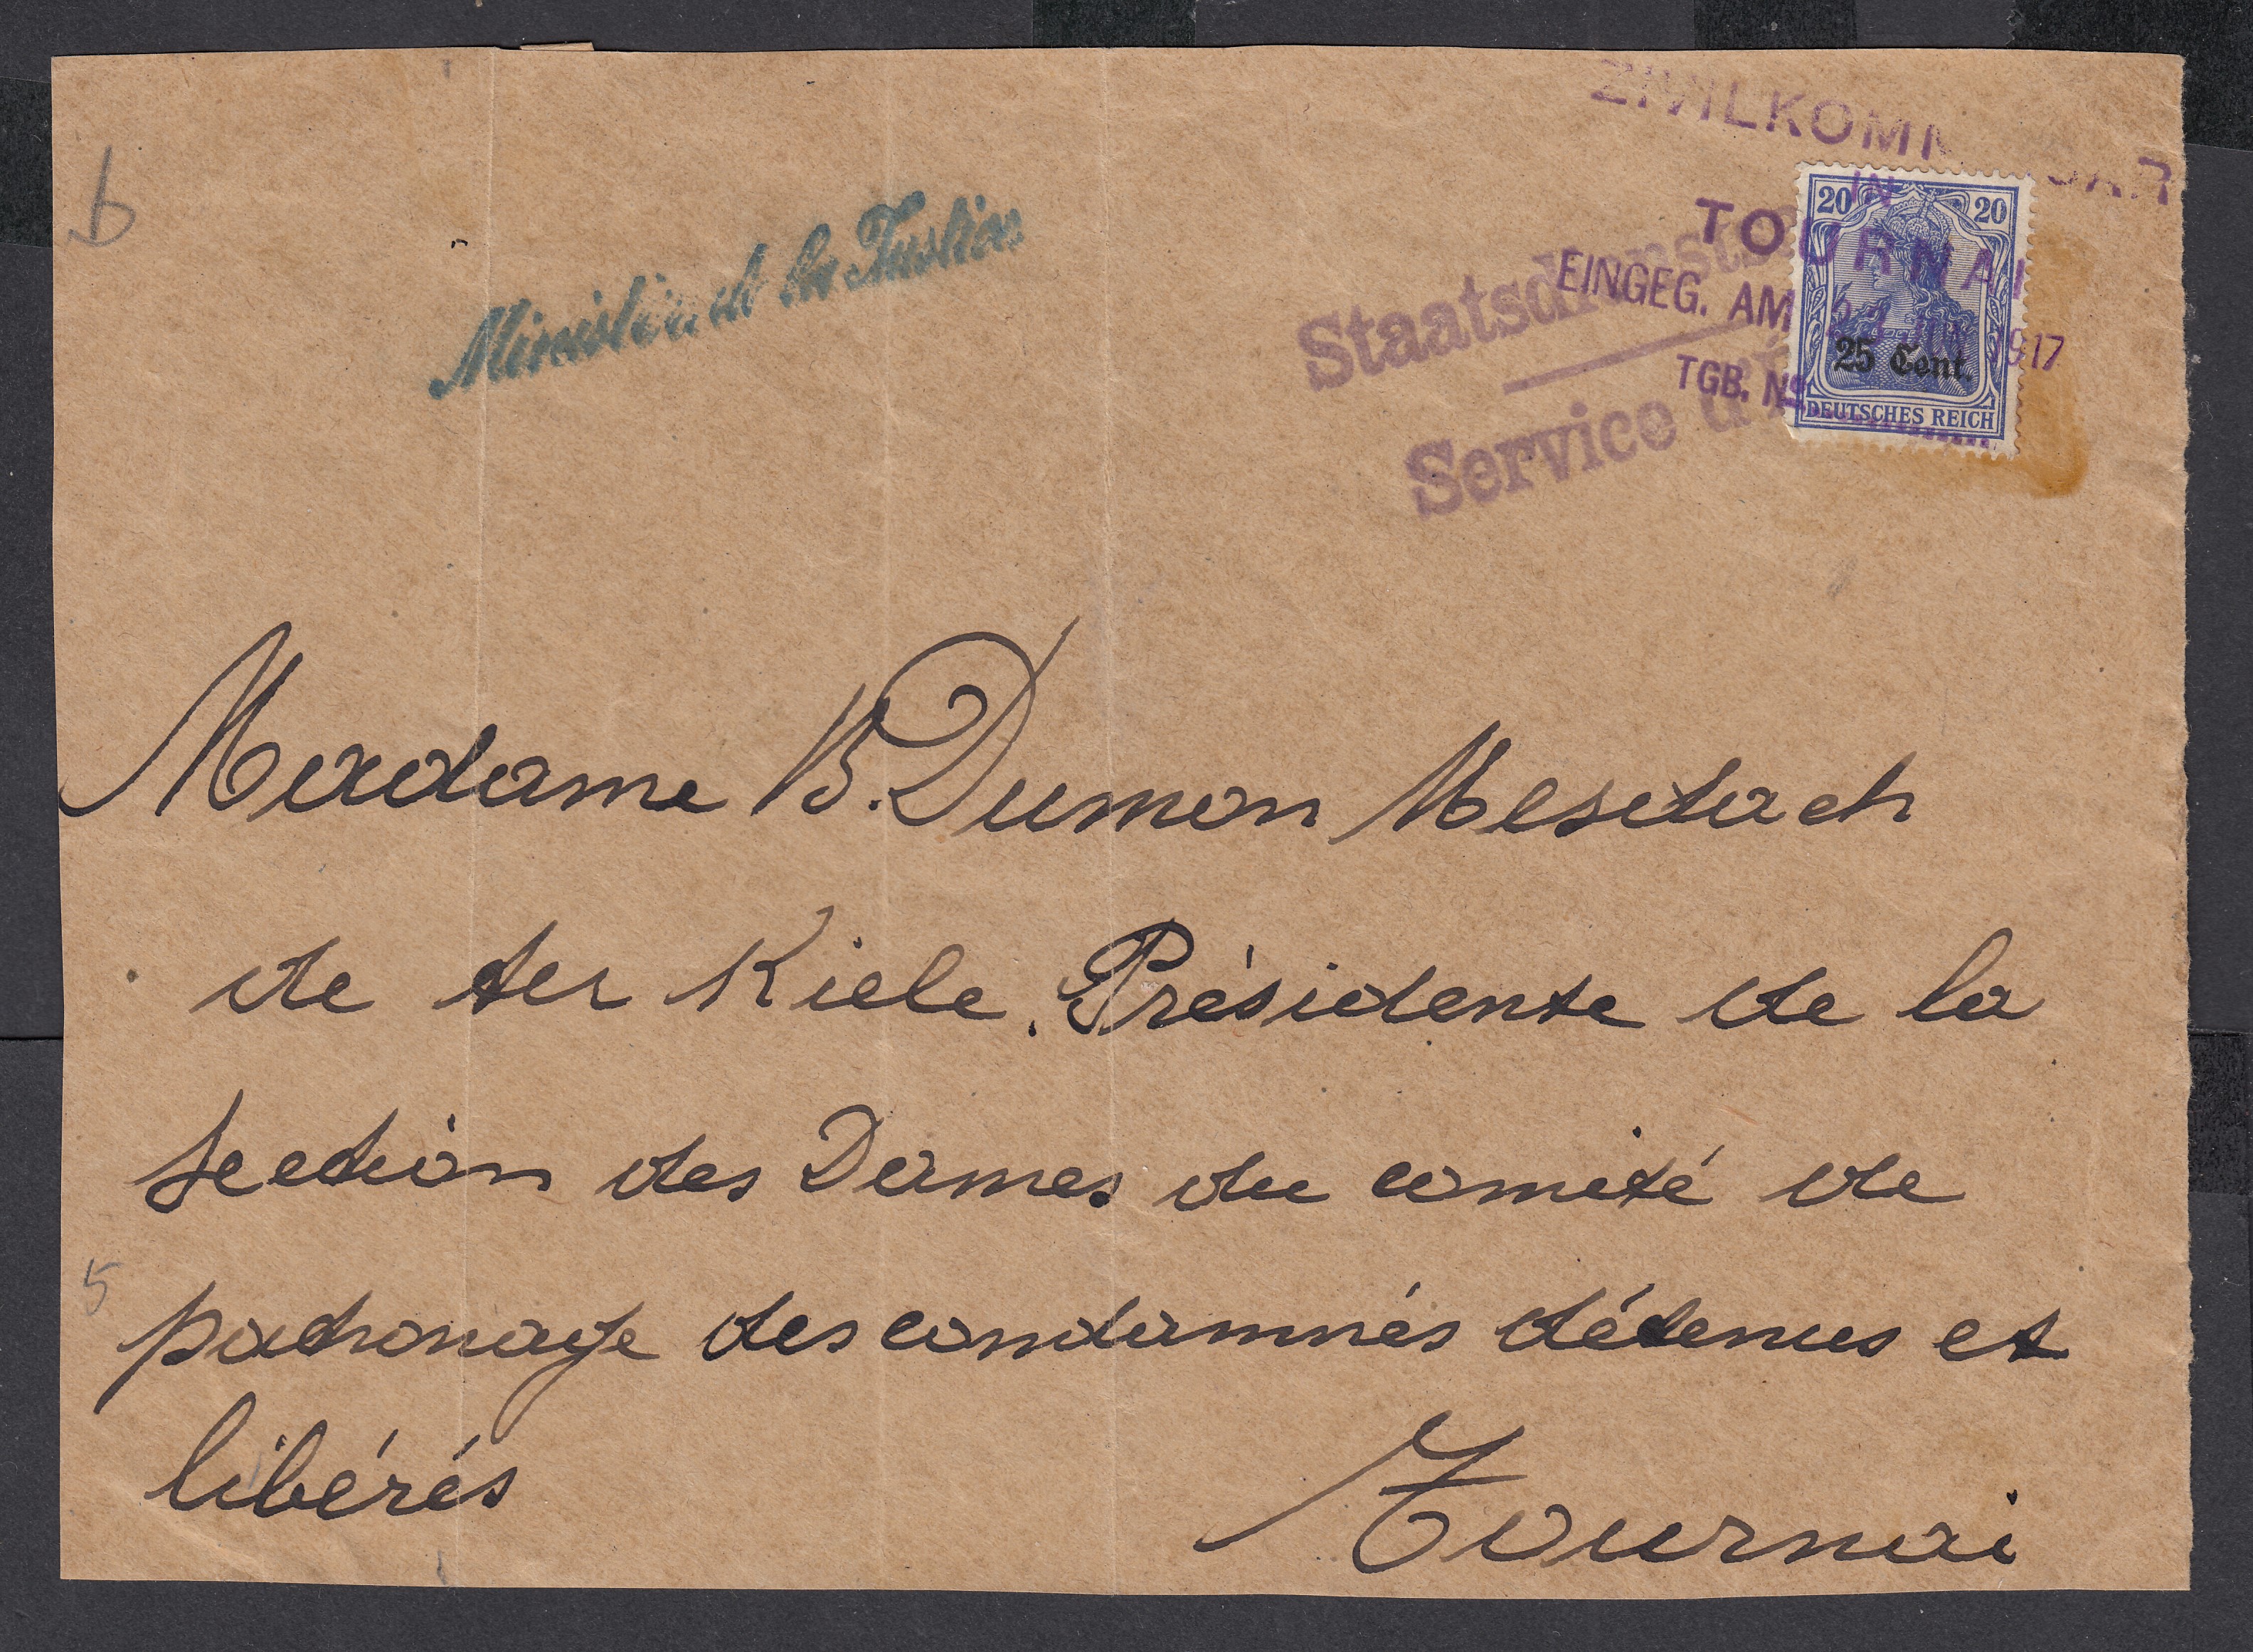 b
Ministère de la Justice
ZIVILKOMM SAR
IN
TOURNAI
EINGEG. AM JUN 1917
TGB. Nº
Staatsdienstsa
Service d
20 20
25 Cent.
DEUTSCHES REICH
Madame B. Dumon Mesdach
de ter Kiele. Présidente de la
section des Dames du comité de
5
patronage des condamnés détenus et
libérés
Tournai